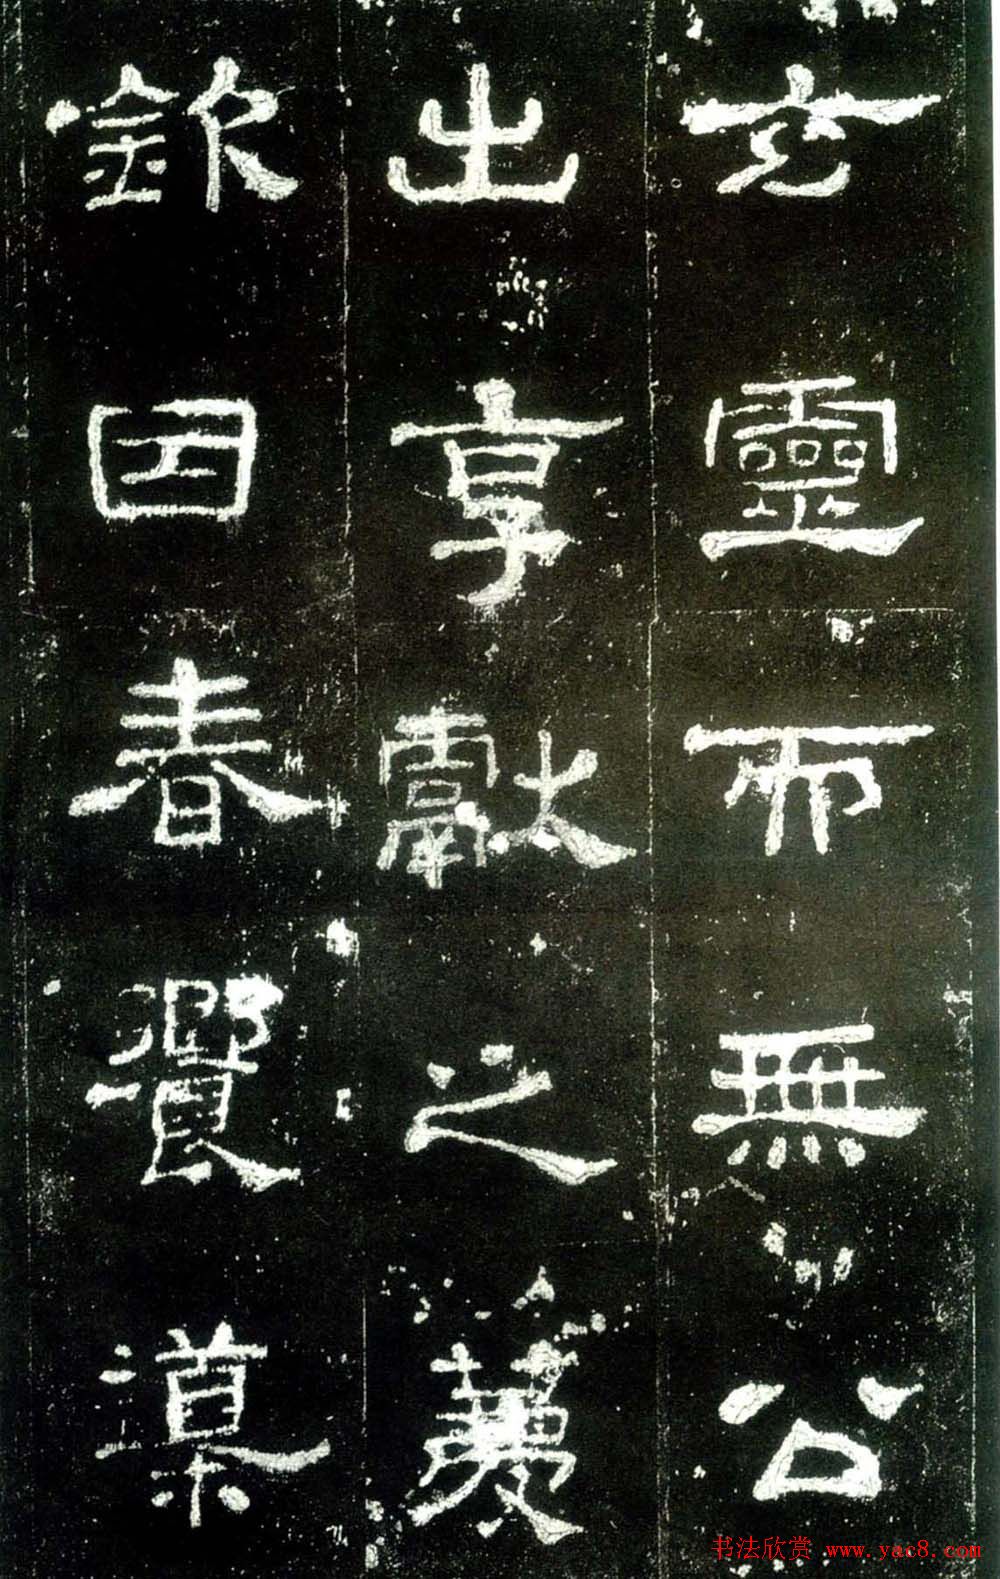 玄靈而無公
出享獻之薦
欽因春饗導
书法欣赏 www.yac8.com